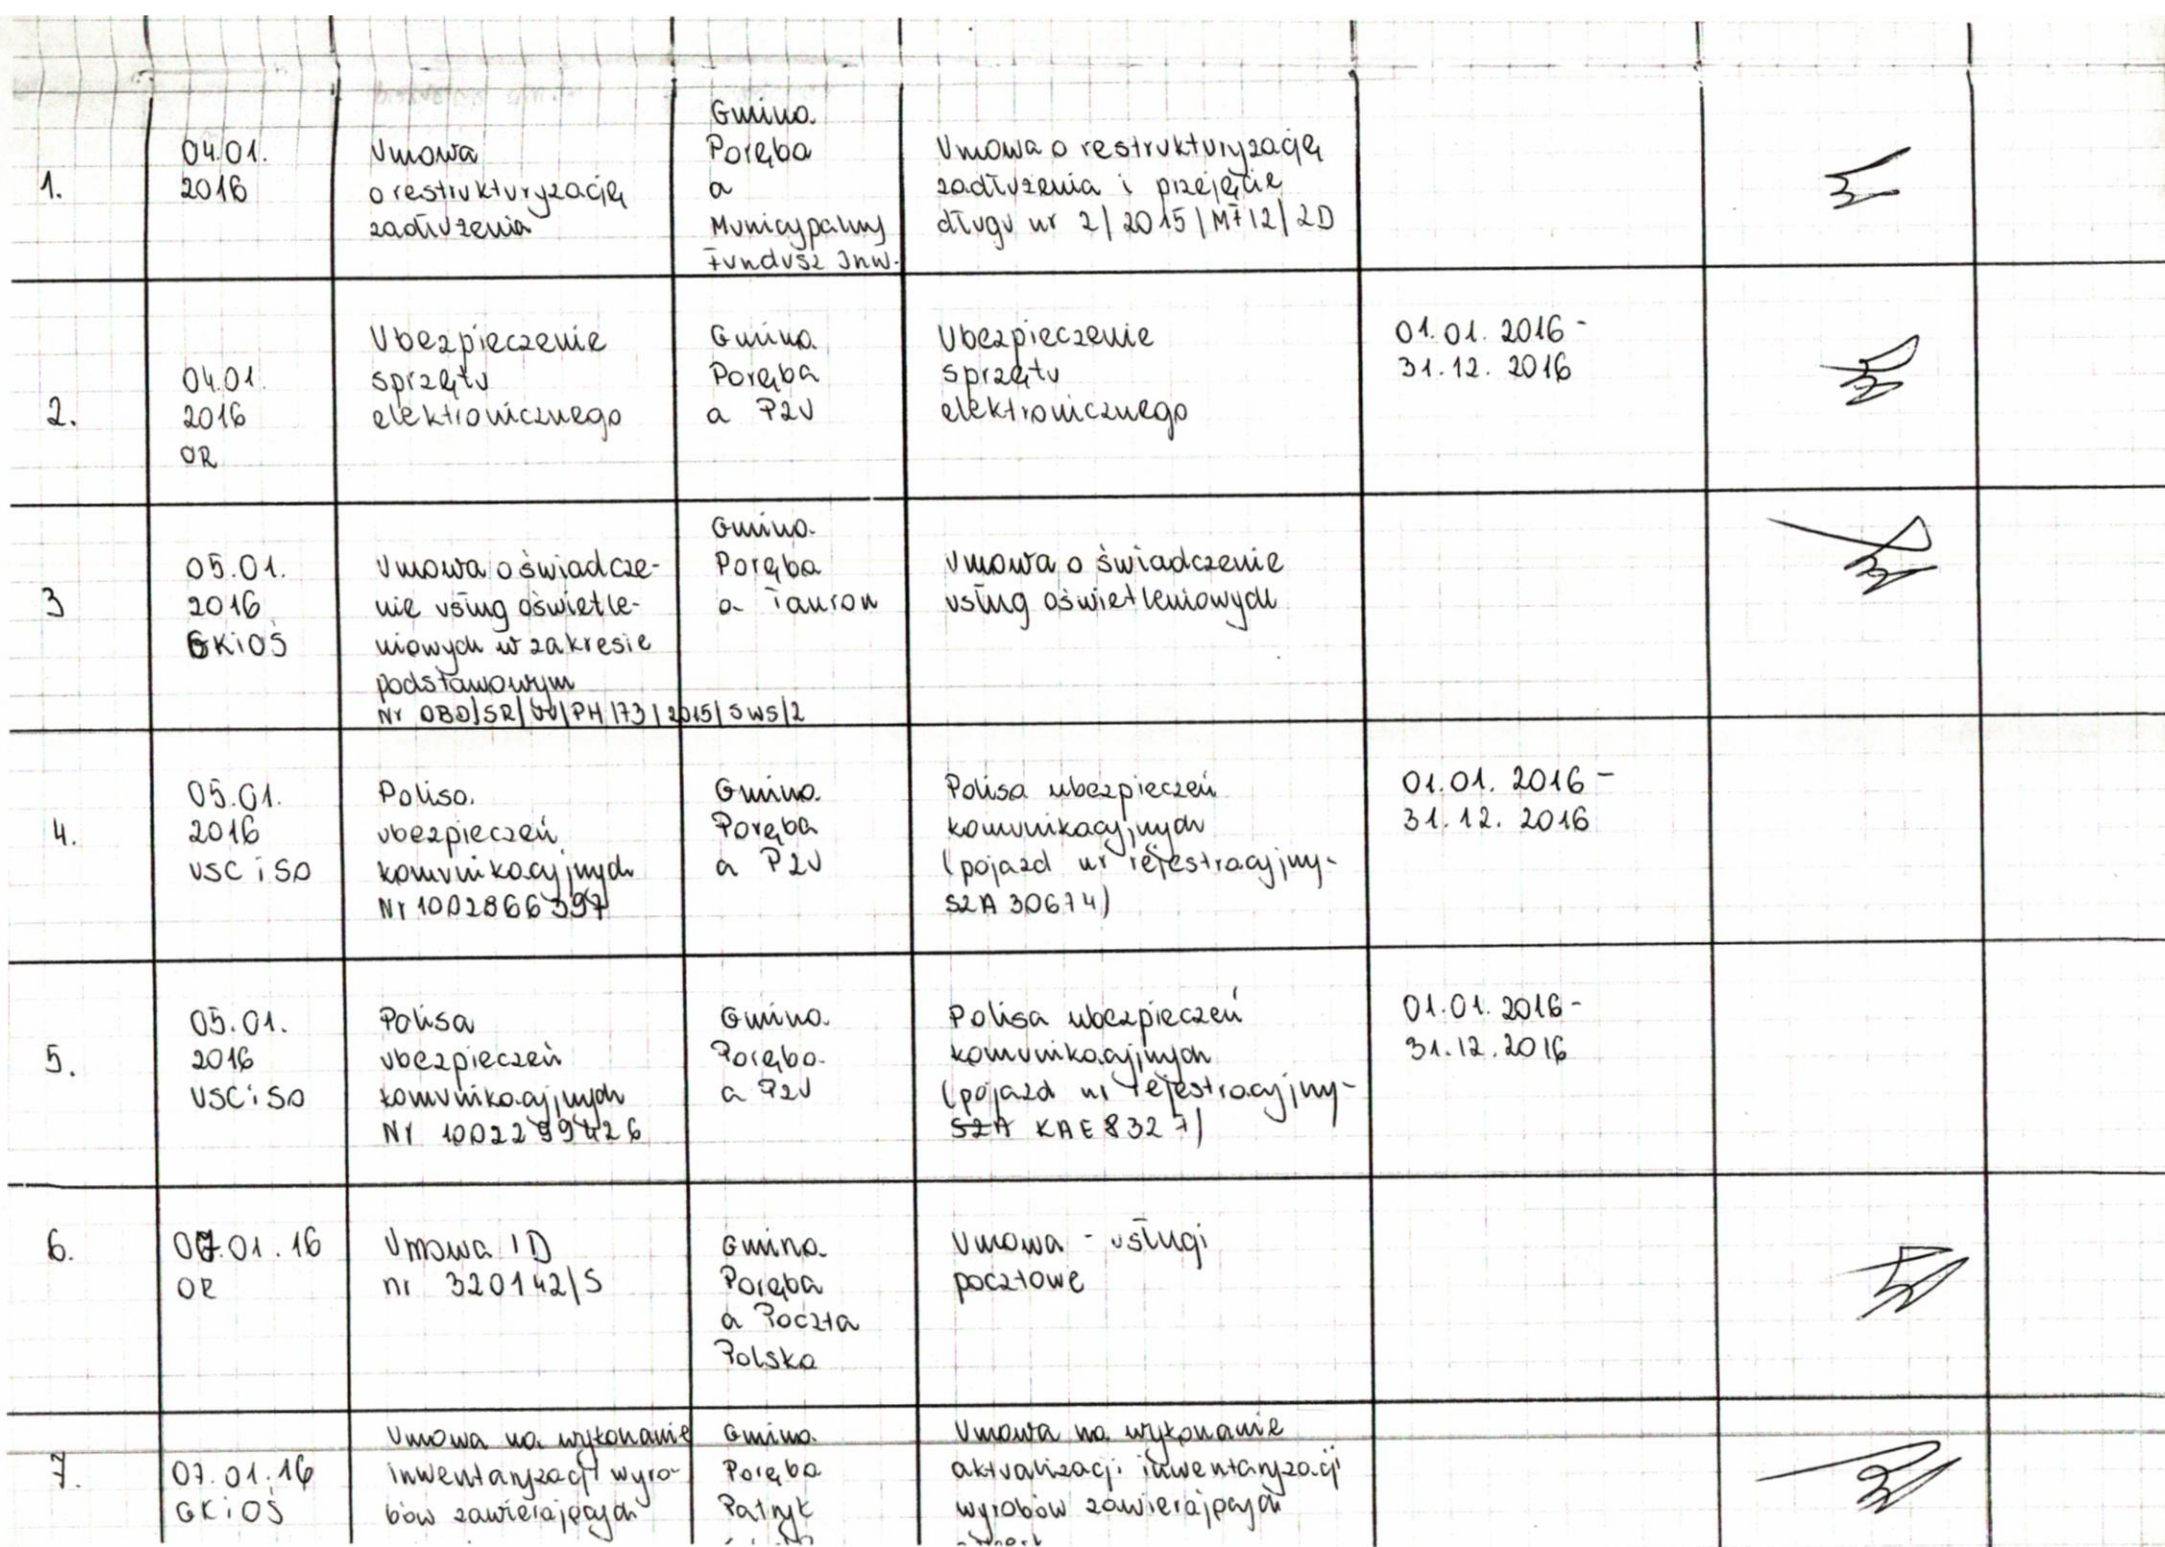 1.
04.01.
2016
Umowa
o restrukturyzację
zadłużenia
Gmina
Poręba
a
Municypalny
Fundusz Inw.
Umowa o restrukturyzację
zadłużenia i przejęcie
długu nr 2/2015/MF12/2D
2.
04.01.
2016
OR
Ubezpieczenie
sprzętu
elektronicznego
Gmina
Poręba
a PZU
Ubezpieczenie
sprzętu
elektronicznego
01.01.2016 -
31.12.2016
3
05.01.
2016
GKiOŚ
Umowa o świadcze-
nie usług oświetle-
niowych w zakresie
podstawowym
Nr OBD/SR/UU/PH/173/2015/SWS/2
Gmina
Poręba
a Tauron
Umowa o świadczenie
usług oświetleniowych
4.
05.01.
2016
USC i SO
Polisa
ubezpieczeń
komunikacyjnych
Nr 1002866397
Gmina
Poręba
a PZU
Polisa ubezpieczeń
komunikacyjnych
(pojazd nr rejestracyjny-
SZA 30674)
01.01.2016 -
31.12.2016
5.
05.01.
2016
USC i SO
Polisa
ubezpieczeń
komunikacyjnych
Nr 1002299426
Gmina
Poręba
a PZU
Polisa ubezpieczeń
komunikacyjnych
(pojazd nr rejestracyjny-
SZA KAE8327)
01.01.2016 -
31.12.2016
6.
07.01.16
OR
Umowa ID
nr 320142/S
Gmina
Poręba
a Poczta
Polska
Umowa - usługi
pocztowe
7.
07.01.16
GKiOŚ
Umowa na wykonanie
inwentaryzacji wyro-
bów zawierających
Gmina
Poręba
Patryk
Umowa na wykonanie
aktualizacji inwentaryzacji
wyrobów zawierających